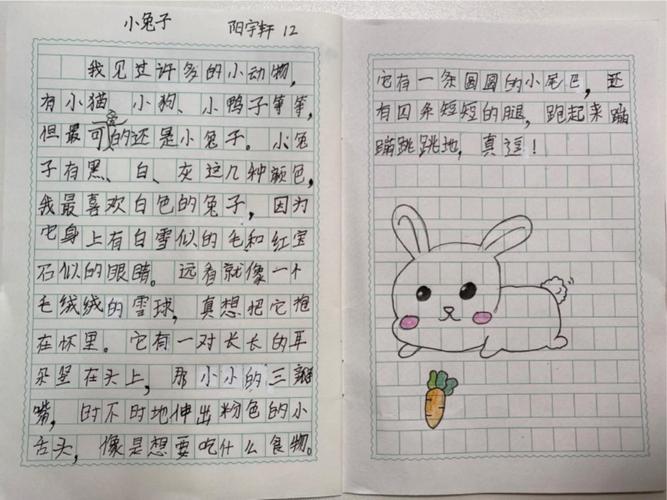 小兔子 阳宇轩 12
我见过许多的小动物,
有小猫、小狗、小鸭子等等,
但最可爱的还是小兔子。小兔
子有黑、白、灰这几种颜色,
我最喜欢白色的兔子,因为
它身上有白雪似的毛和红宝
石似的眼睛。远看就像一个
毛绒绒的雪球,真想把它抱
在怀里。它有一对长长的耳
朵竖在头上,那小小的三瓣
嘴,时不时地伸出粉色的小
舌头,像是想要吃什么食物。
它有一条圆圆的小尾巴,还
有四条短短的腿,跑起来蹦
蹦跳跳地,真逗!